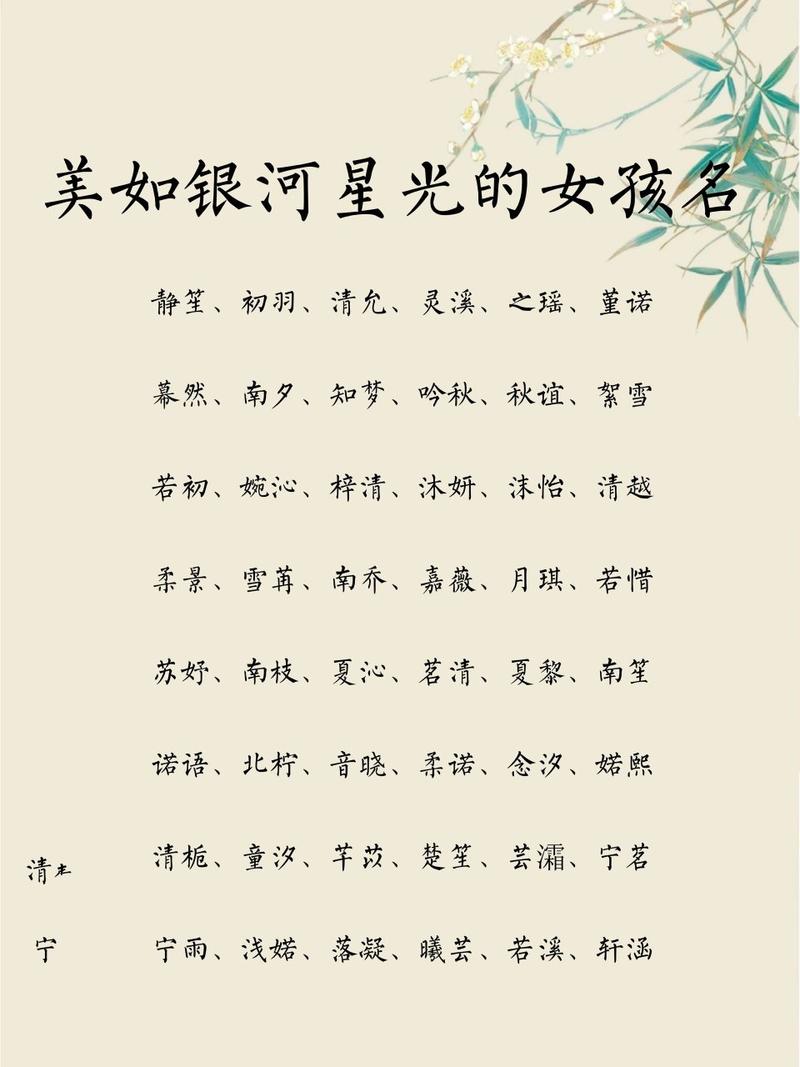 美如银河星光的女孩名
静笙、初羽、清允、灵溪、之瑶、堇诺
幕然、南夕、知梦、吟秋、秋谊、絮雪
若初、婉沁、梓清、沐妍、沫怡、清越
柔景、雪苒、南乔、嘉薇、月琪、若惜
苏妤、南枝、夏沁、茗清、夏黎、南笙
诺语、北柠、音晓、柔诺、念汐、婼熙
清栀、童汐、芊苡、楚笙、芸灀、宁茗
宁雨、浅婼、落凝、曦芸、若溪、轩涵
清
宁